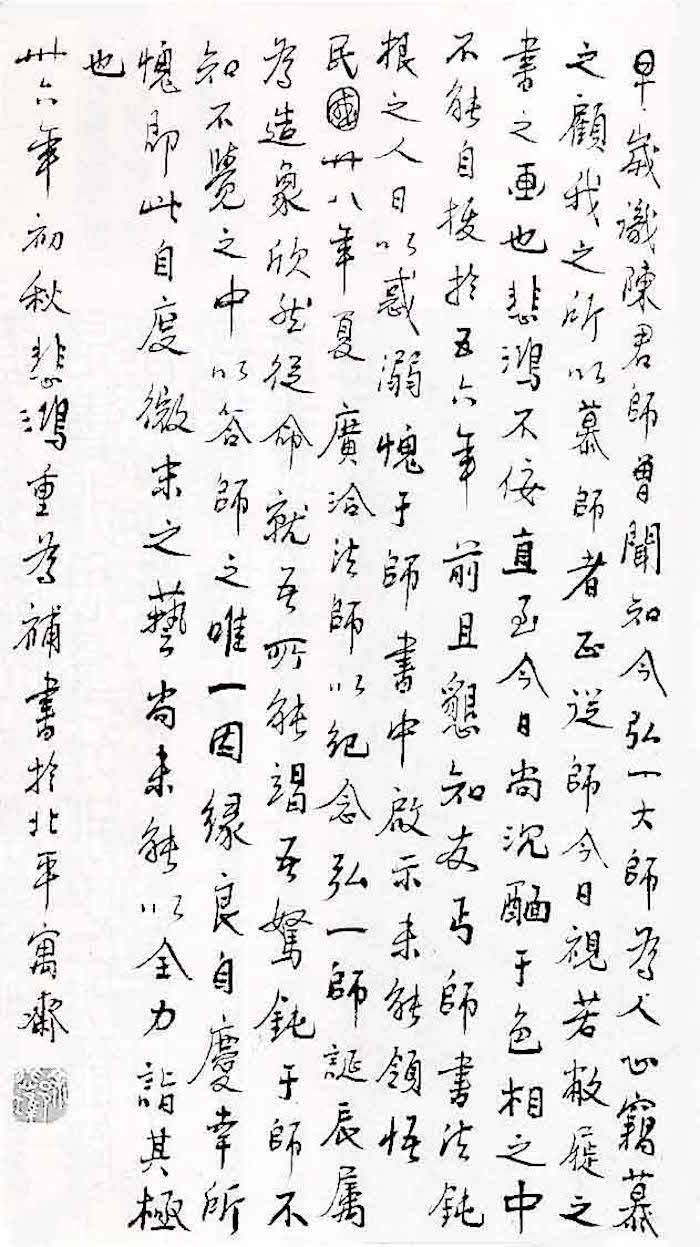 早歲識陳君師曾聞知今弘一大師為人心竊慕
之顧我之所以慕師者正從師今日視若敝屣之
書之画也悲鴻不佞直至今日尚沉湎于色相之中
不能自拔於五六年前且懇知友丐師書法鈍
根之人日以惑溺愧于師書中啟示未能領悟
民國卅八年夏廣洽法師以紀念弘一師誕辰属
為造象欣然從命就吾所能竭吾駑鈍于師不
知不覺之中以答師之唯一因緣良自慶幸所
愧即此自度微末之藝尚未能以全力詣其極
也
卅六年初秋悲鴻重為補書於北平寓齋